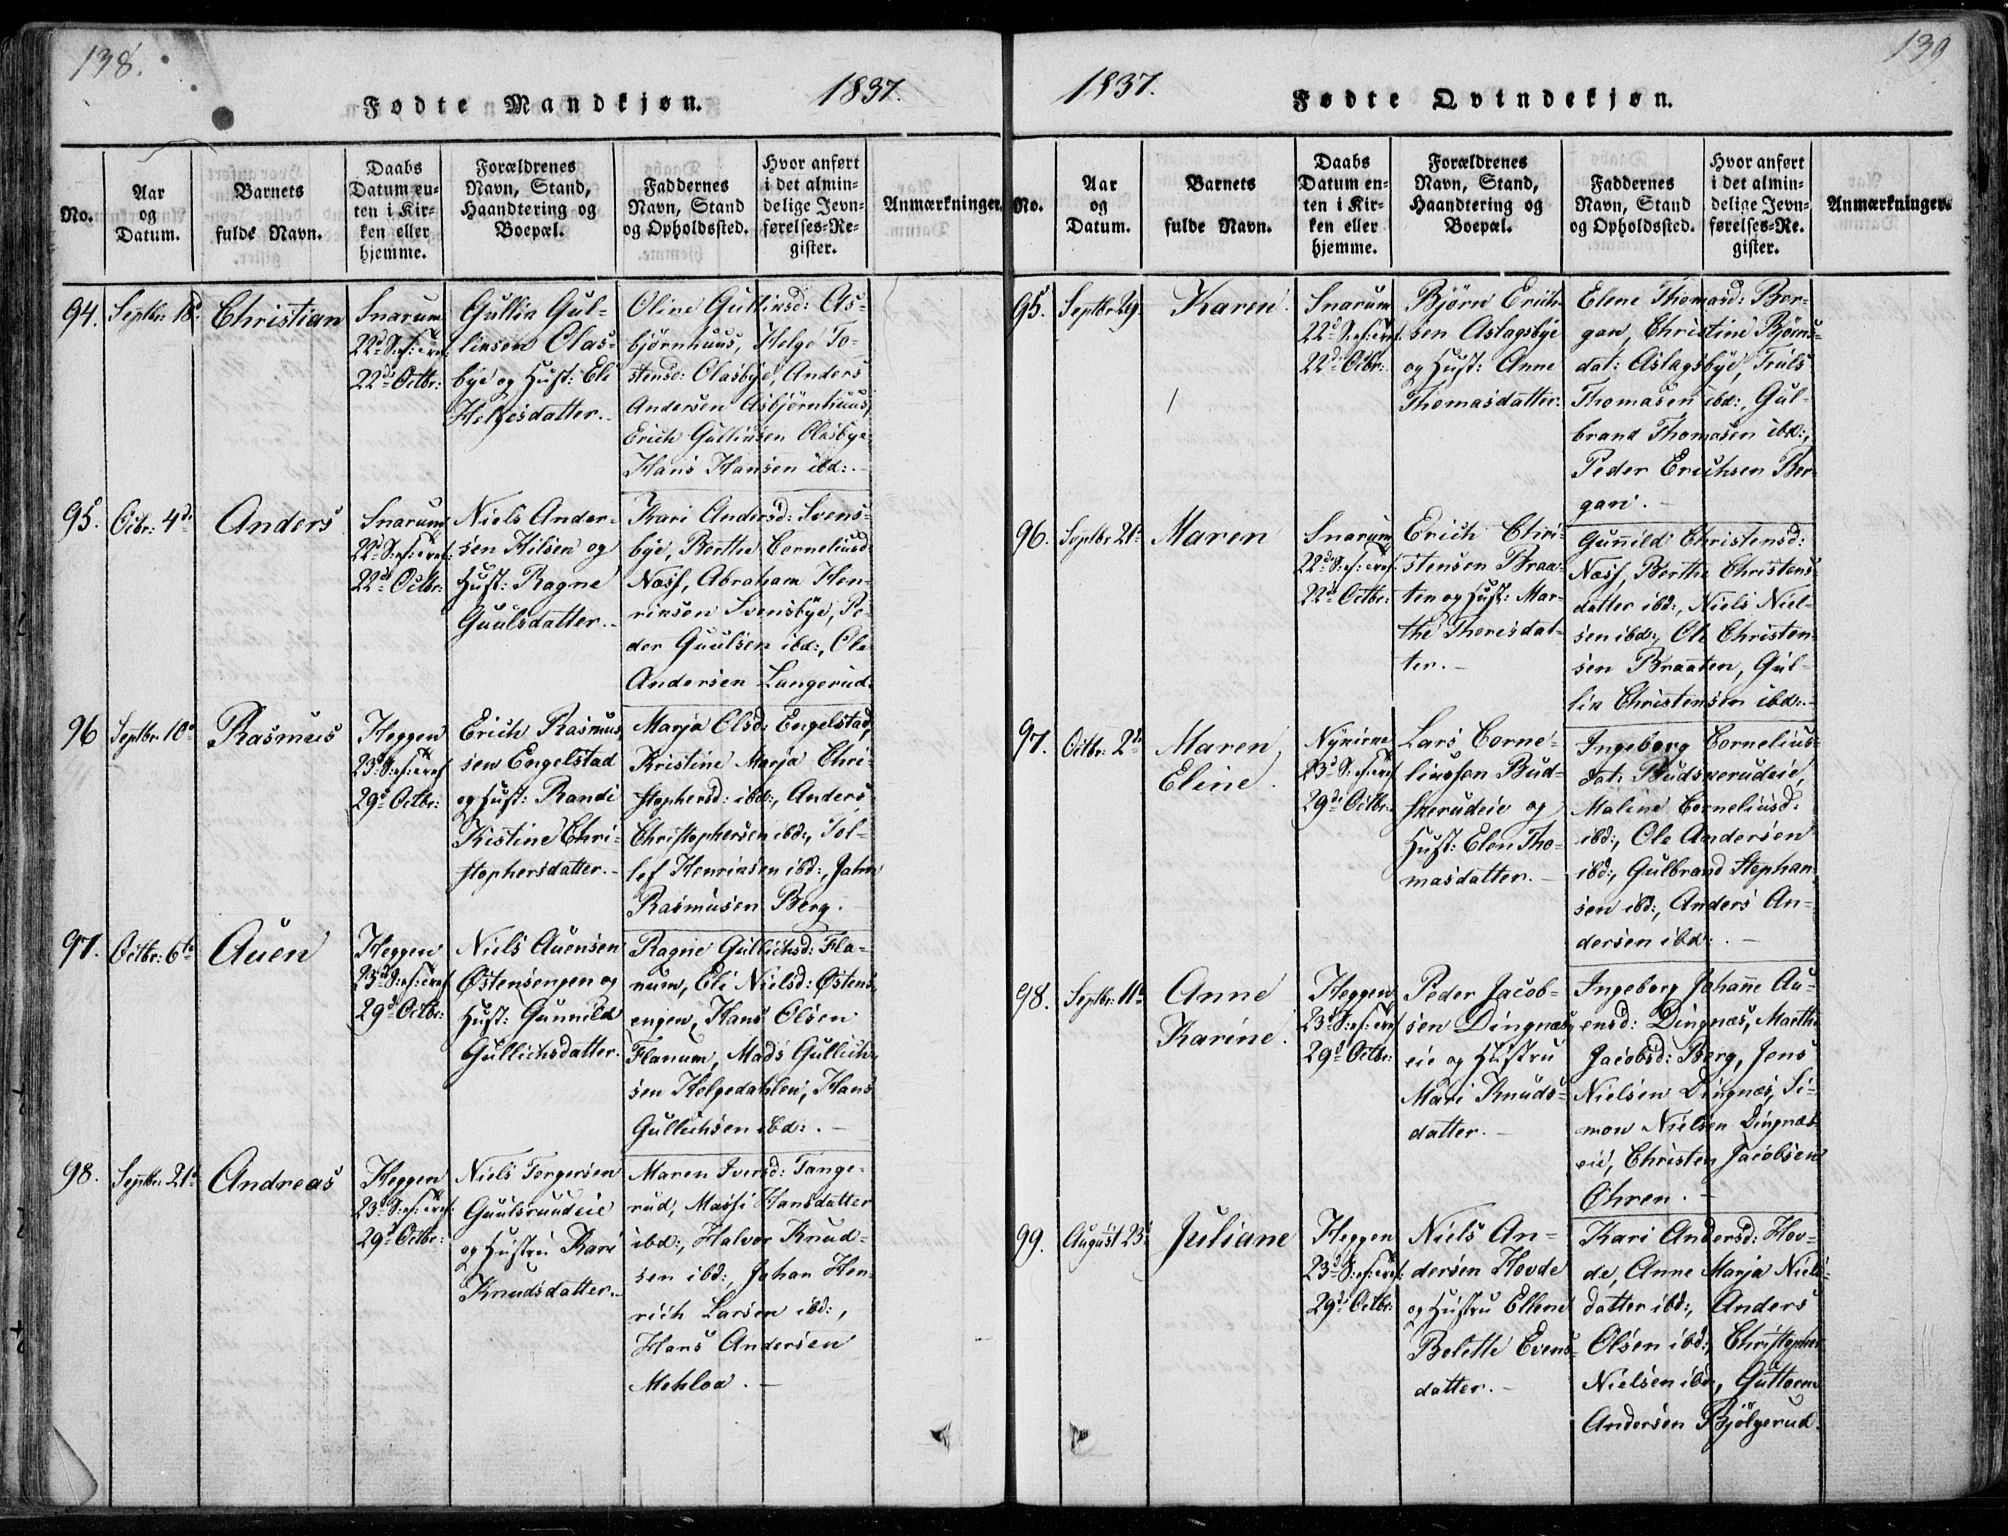 138.
Fødte Mandkjøn. 1837.
No.
Aar
og
Datum.
Barnets
fulde Navn.
Daabs
Datum en-
ten i Kir-
ken eller
hjemme.
Forældrenes
Navn, Stand,
Haandtering og
Boepæl.
Faddernes
Navn, Stand
og Opholdssted.
Hvor anført
i det almin-
delige Jevn-
førelses-Re-
gister.
Anmærkninger.
94.
Septbr: 18d
Christian
Snarum
22d S: ef: tref:
22d Octbr:
Gullik Gul-
liksen Olas-
bye og Hust: Eli
Helgesdatter.
Oline Gulliksd: As-
bjørnhuus, Helge To-
stens: Olasbye, Anders
Andersen Asbjørnhuus,
Erich Gulliksen Olasbye
Hans Hansen ibd:.
95.
Octbr: 4de
Anders
Snarum
22d S: ef: tref:
22d Octbr:
Niels Ander-
sen Hilsen og
Hust: Ragne
Guulsdatter.
Kari Andersd: Svens-
bye, Berthe Corneliusd:
Næss, Abraham Hen-
riksen Svensbye, Pe-
der Guulsen ibd:, Ole
Andersen Langerud.
96
Septbr: 10d
Rasmus
Heggen
23d S: ef: tref
29d Octbr:
Erich Rasmus-
sen Engelstad
og Hust: Randi
Kistine Chri-
stophersdatter.
Marja Olsd: Engelstad,
Kristine Marja Chri-
stophersd: ibd:, Anders
Christophersen ibd:, Tol-
lef Henriksen ibd:, John
Rasmusen Berg.
97.
Octbr: 6te
Auen
Heggen
23d S: ef: tref
29d Octbr:
Niels Auensen
Østensengen og
Hust: Gunnild
Gullichsdatter.
Ragne Gullichsd: Fla-
num, Eli Nielsd: Østens-
engen, Hans Olsen
Flanum, Mads Gullich-
sen Helgedahlen, Hans
Gullichsen ibd:.
98.
Septbr: 21d
Andreas
Heggen
23d S: ef: tref:
29d Octbr:
Niels Torgersen
Guulsruudeie
og Hustru Kari
Knudsdatter.
Maren Iversd: Tange-
rud, Massi Hansdatter
ibd:, Halvor Knud-
sen ibd:, Johan Hen-
rich Larsen ibd:,
Hans Andersen
Mehloa.
139
1837. Fødte Qvindekjøn.
No.
Aar
og
Datum.
Barnets
fulde Navn.
Daabs
Datum en-
ten i Kir-
ken eller
hjemme.
Forældrenes
Navn, Stand,
Haandtering og
Boepæl.
Faddernes
Navn, Stand
og Opholdssted.
Hvor anført
i det almin-
delige Jevn-
førelses-Re-
gister.
Anmærkninger.
95.
Septbr: 29
Karen
Snarum
22d S: ef: tref:
22d Octbr:
Bjørn Erich-
sen Aslagsbye
og Hust: Anne
Thomasdatter.
Elene Thomasd: Ber-
gan, Christine Bjørns-
dat: Aslagsbye, Truls
Thomasen ibd:, Gul-
brand Thomasen ibd:,
Peder Erichsen Ber-
gan.
96.
Septbr: 21d
Maren
Snarum
22d S: ef: tref:
22d Octbr:
Erich Chri-
stensen Braa-
ten og Hust: Mar-
the Thoresdat-
ter.
Gunnild Christensd:
Næss, Berthe Christens-
datter ibd:, Niels Niel-
sen ibd:, Ole Christen-
sen Braaten, Gul-
lik Christensen ibd:
97.
Octbr: 2den
Maren
Eline.
Nykirke
23d S: ef: tref
29d Octbr:
Lars Corne-
liussen Bud-
skerudeie og
Hust: Elen Tho-
masdatter.
Ingeborg Cornelius-
dat: Budskerudeie,
Maline Corneliusd:
ibd:, Ole Andersen
ibd:, Gulbrand Stephan-
sen ibd:, Anders An-
dersen ibd:.
98.
Septbr: 11d
Anne
Karine.
Heggen
23d S: ef: tref
29d Octbr:
Peder Jacob-
sen Dingnæs-
eie og Hustru
Mari Knuds-
datter.
Ingeborg Johanne Au-
ensd: Dingnæs, Marthe
Jacobsd: Berg, Jens
Nielsen Dingnæs, Si-
mon Nielsen Dingnæs-
eie, Christen Jacobsen
Øhren.
99.
August 23d
Juliane
Heggen
23d S: ef: tref:
29d Octbr:
Niels An-
dersen Hovde
og Hustru Ellene
Belette Evens-
datter.
Kari Andersd: Hov-
de, Anne Marja Niels-
datter ibd:, Anders
Olsen ibd:, Christopher
Nielsen ibd:, Guttorm
Andersen Bjølgerud.